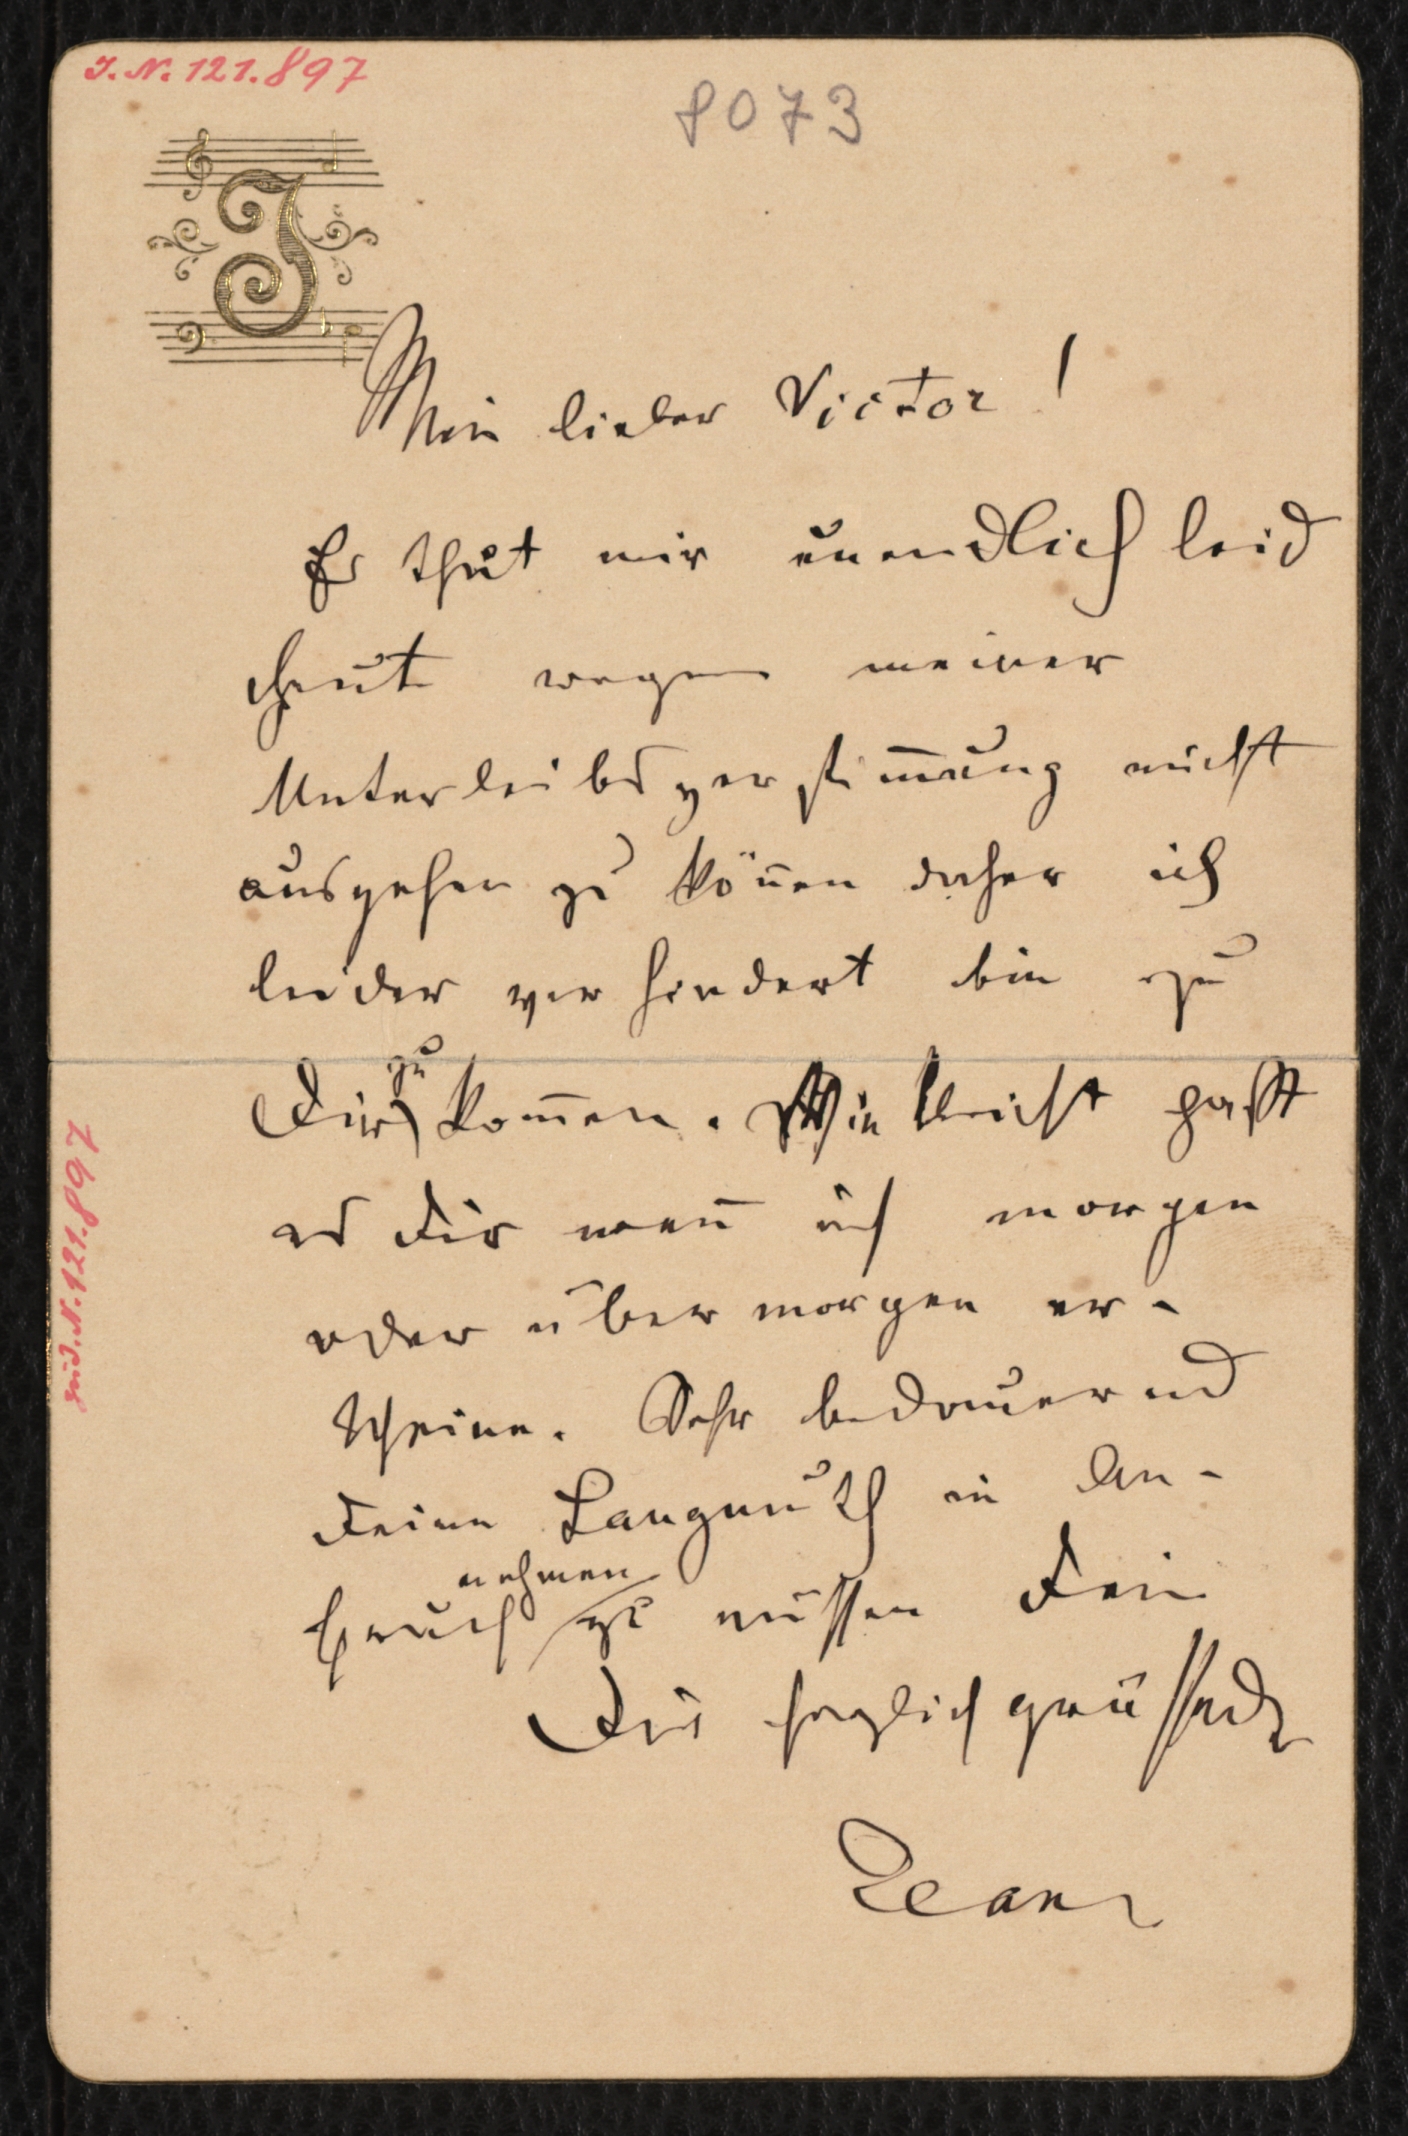 I. N. 121.897
8073
J
Mein lieber Victor!
Es thut mir unendlich leid
heut wegen meiner
Unterleibsverstimmung nicht
ausgehen zu können daher ich
leider verhindert bin zu
Dir zu kommen. Vielleicht passt
es Dir wenn ich morgen
oder übermorgen er-
scheine. Sehr bedauernd
Deine Langmuth in An-
spruch nehmen zu müssen Dein
Dich herzlich grüssender
Jean
I. N. 121.897